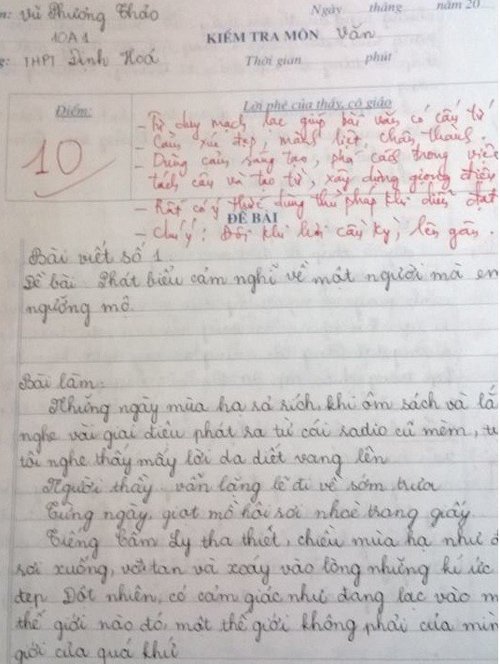 n: Vũ Phương Thảo
Ngày tháng năm 20
10A1
KIỂM TRA MÔN Văn
g: THPT Định Hoá
Thời gian phút
Điểm:
Lời phê của thầy, cô giáo
10
- Tư duy mạch lạc giúp bài văn có cấu tứ
- Cảm xúc đẹp, mãnh liệt, chân thành.
- Dùng câu sáng tạo, phá cách trong việc
tách câu và tạo từ, xây dựng giọng điệu
- Rất có ý thức dùng thủ pháp khi diễn đạt
- Chú ý: Đôi khi hơi cầu kỳ, lên gân.
ĐỀ BÀI
Bài viết số 1
Đề bài: Phát biểu cảm nghĩ về một người mà em
ngưỡng mộ
Bài làm:
Những ngày mùa hạ rả rích, khi ôm sách và lắ
nghe vài giai điệu phát ra từ cái radio cũ mèm, t
tôi nghe thấy mấy lời da diết vang lên
Người thầy vẫn lặng lẽ đi về sớm trưa
Từng ngày, giọt mồ hôi rơi nhoè trang giấy
Tiếng Cẩm Ly tha thiết, chiều mùa hạ như
rơi xuống, vỡ tan và xoáy vào lòng những kí ức
đẹp. Đột nhiên, có cảm giác như đang lạc vào m
thế giới nào đó, một thế giới không phải của mìn
giới của quá khứ